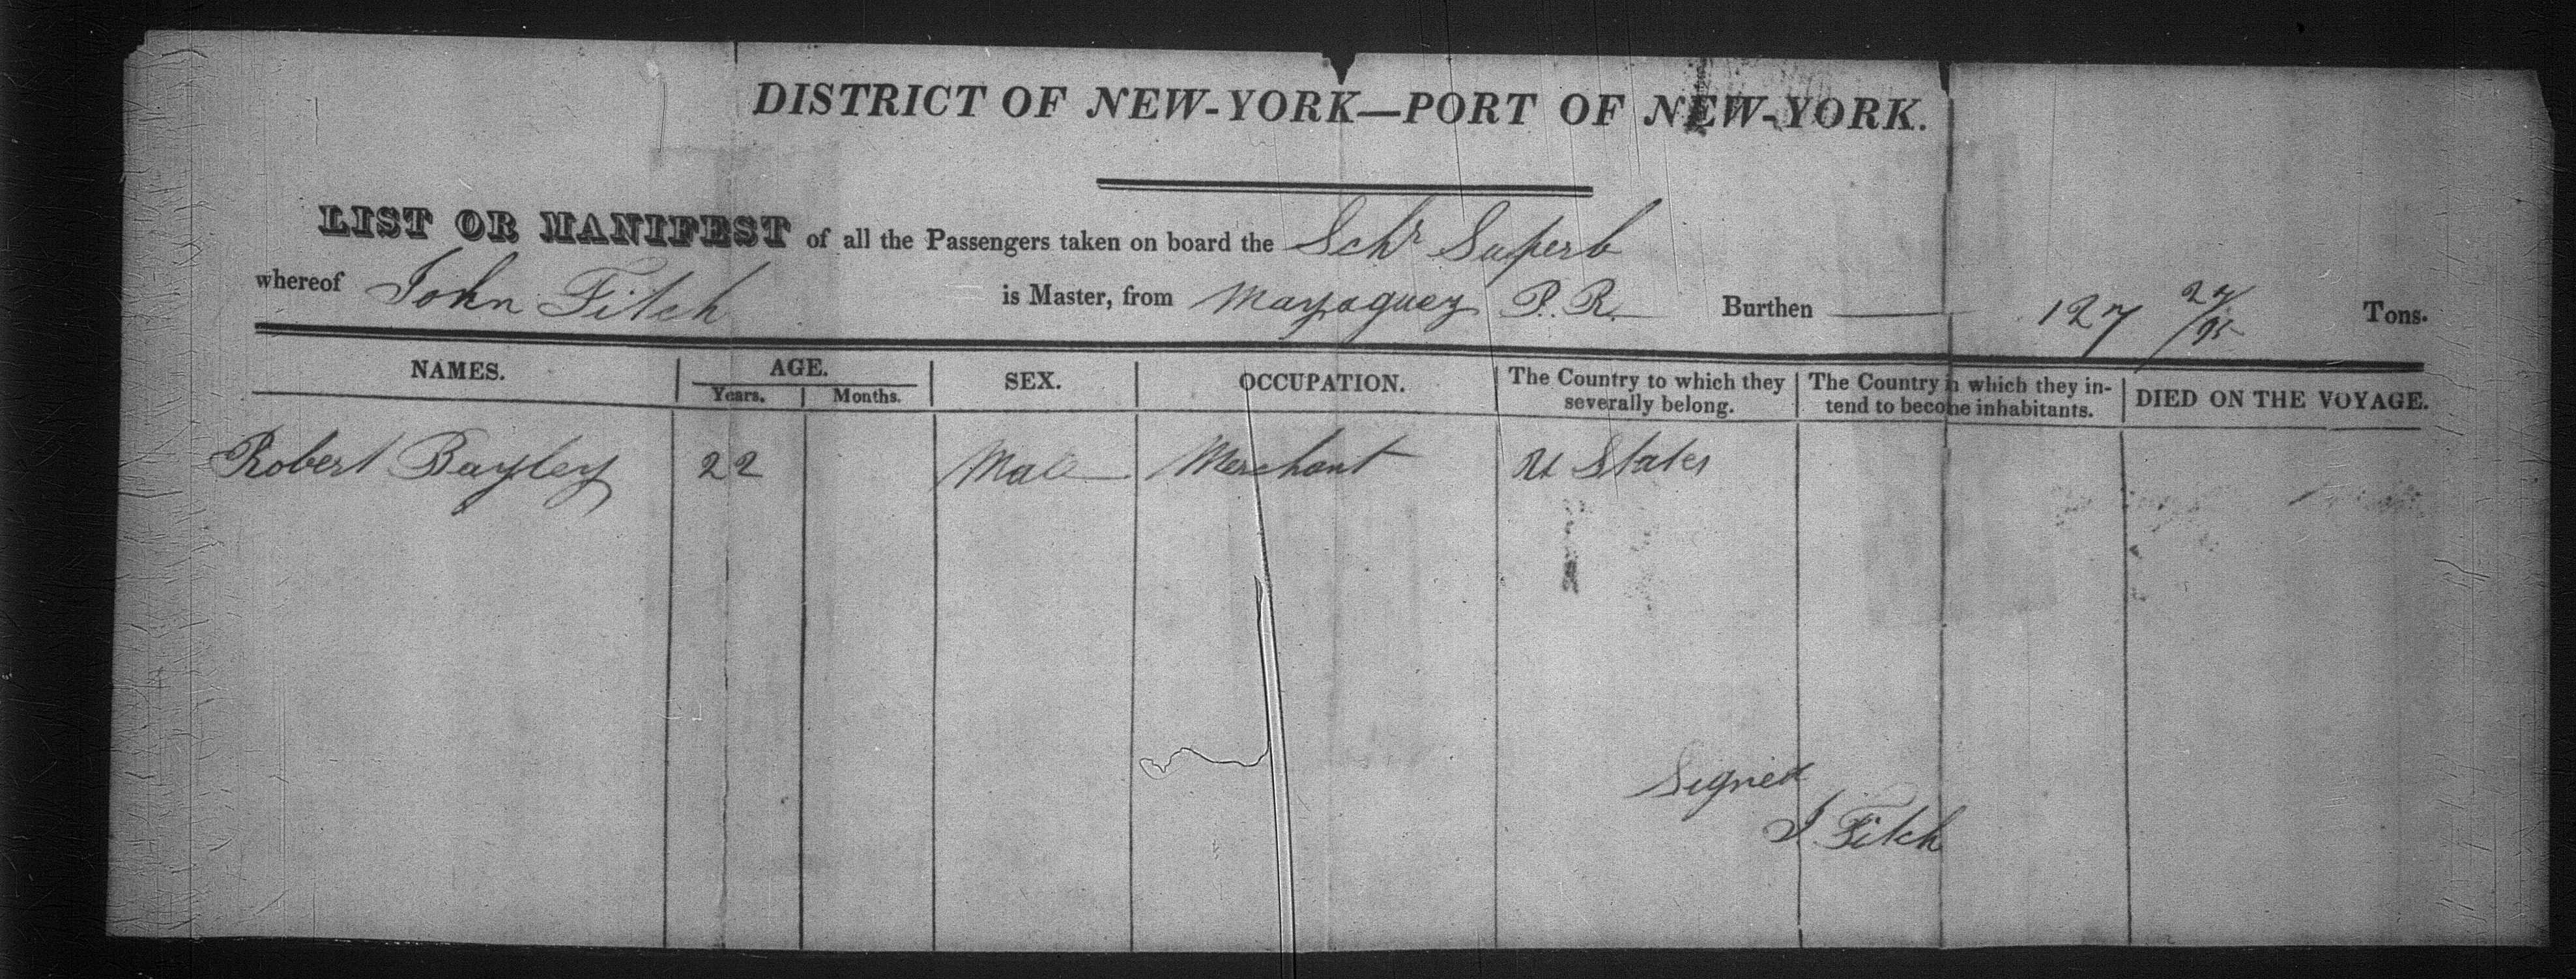 DISTRICT OF NEW-YORK—PORT OF NEW-YORK.
LIST OR MANIFEST of all the Passengers taken on board the Schr Superb
whereof John Fitch is Master, from Mayaguez P. R. Burthen 127 27/95 Tons.
NAMES. AGE. SEX. OCCUPATION. The Country to which they severally belong. The Country in which they intend to become inhabitants. DIED ON THE VOYAGE.
Years. Months.
Robert Bayley 22 Male Merchant U States
Signed
J Fitch